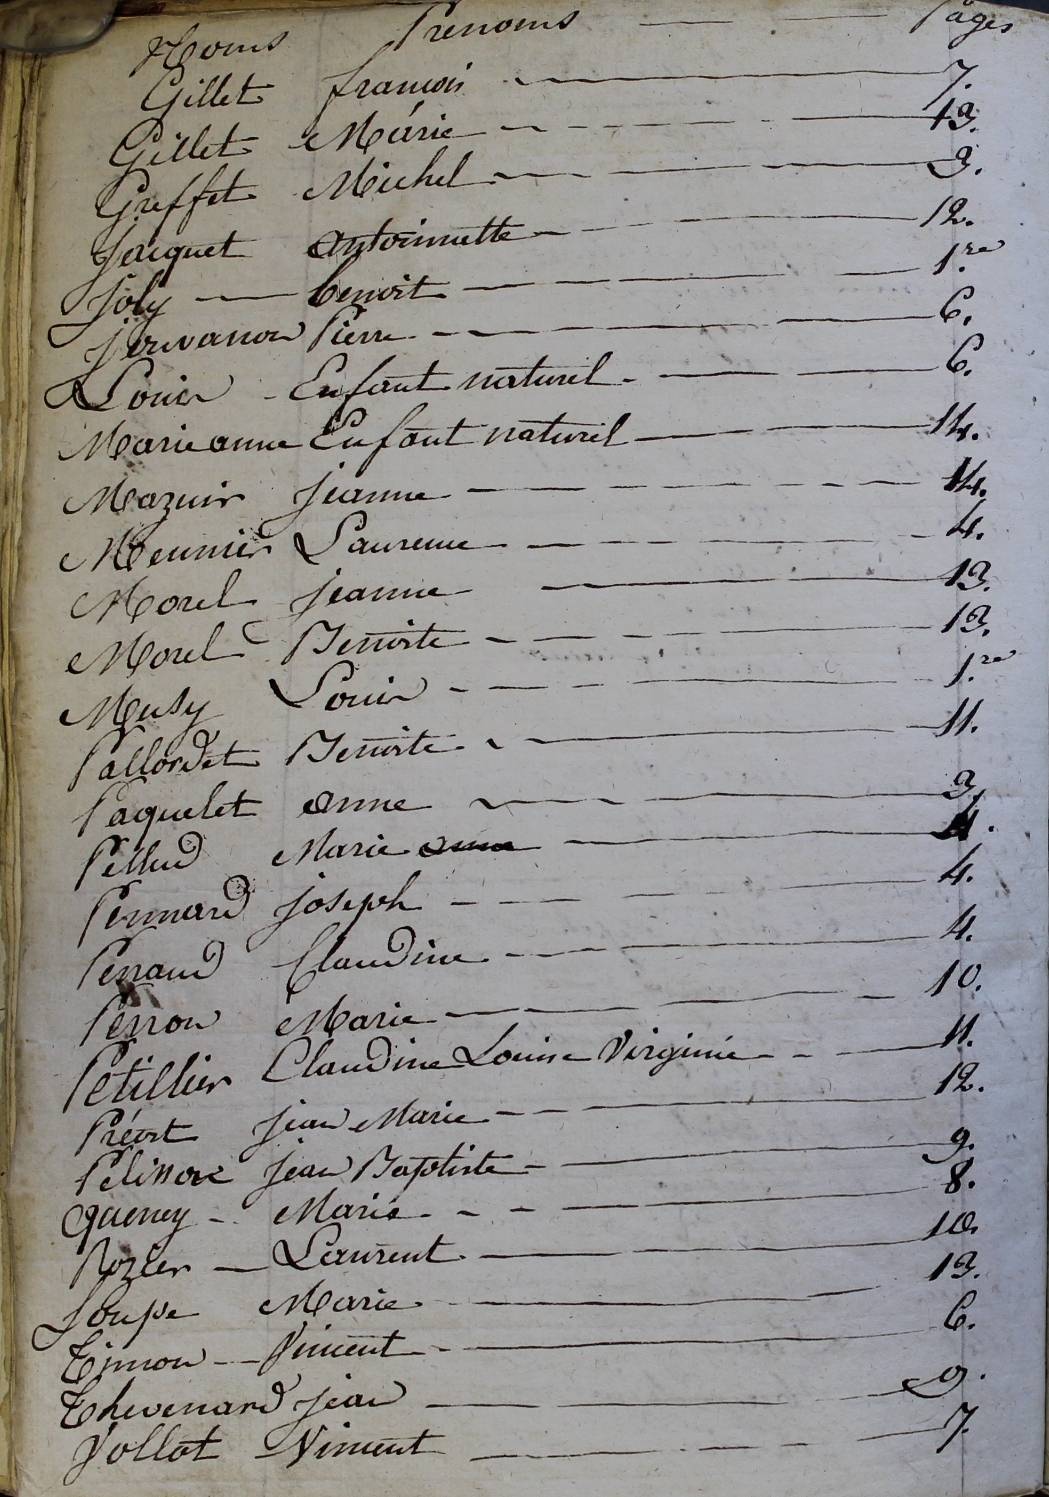 Noms Prenoms Pages
Gillet francois 7.
Gillet Marie 13.
Greffet Michel 3.
Jacquet antoinnette 12.
Joly benoit 1.re
Pierre 6.
Louis Enfant naturel 6.
Marie anne Enfant naturel 14.
Mazuir jeanne 14.
Meunier Laurence 4.
Morel jeanne 13.
Morel Benoite 13.
Musy Louis 1.re
Pallordet Benoite 11.
Paquelet anne 3.
Pellud Marie
Pennard joseph 4.
Perraud Claudine 4.
Perron Marie 10.
Petillier Claudine Louise Virginie 11.
Prévot jean Marie 12.
Pelisson jean Baptiste 9.
Queney Marie 8.
Rozier Laurent 10.
Soupe Marie 13.
Vincent 6.
Thevenard jean 9.
Vollat Vincent 7.